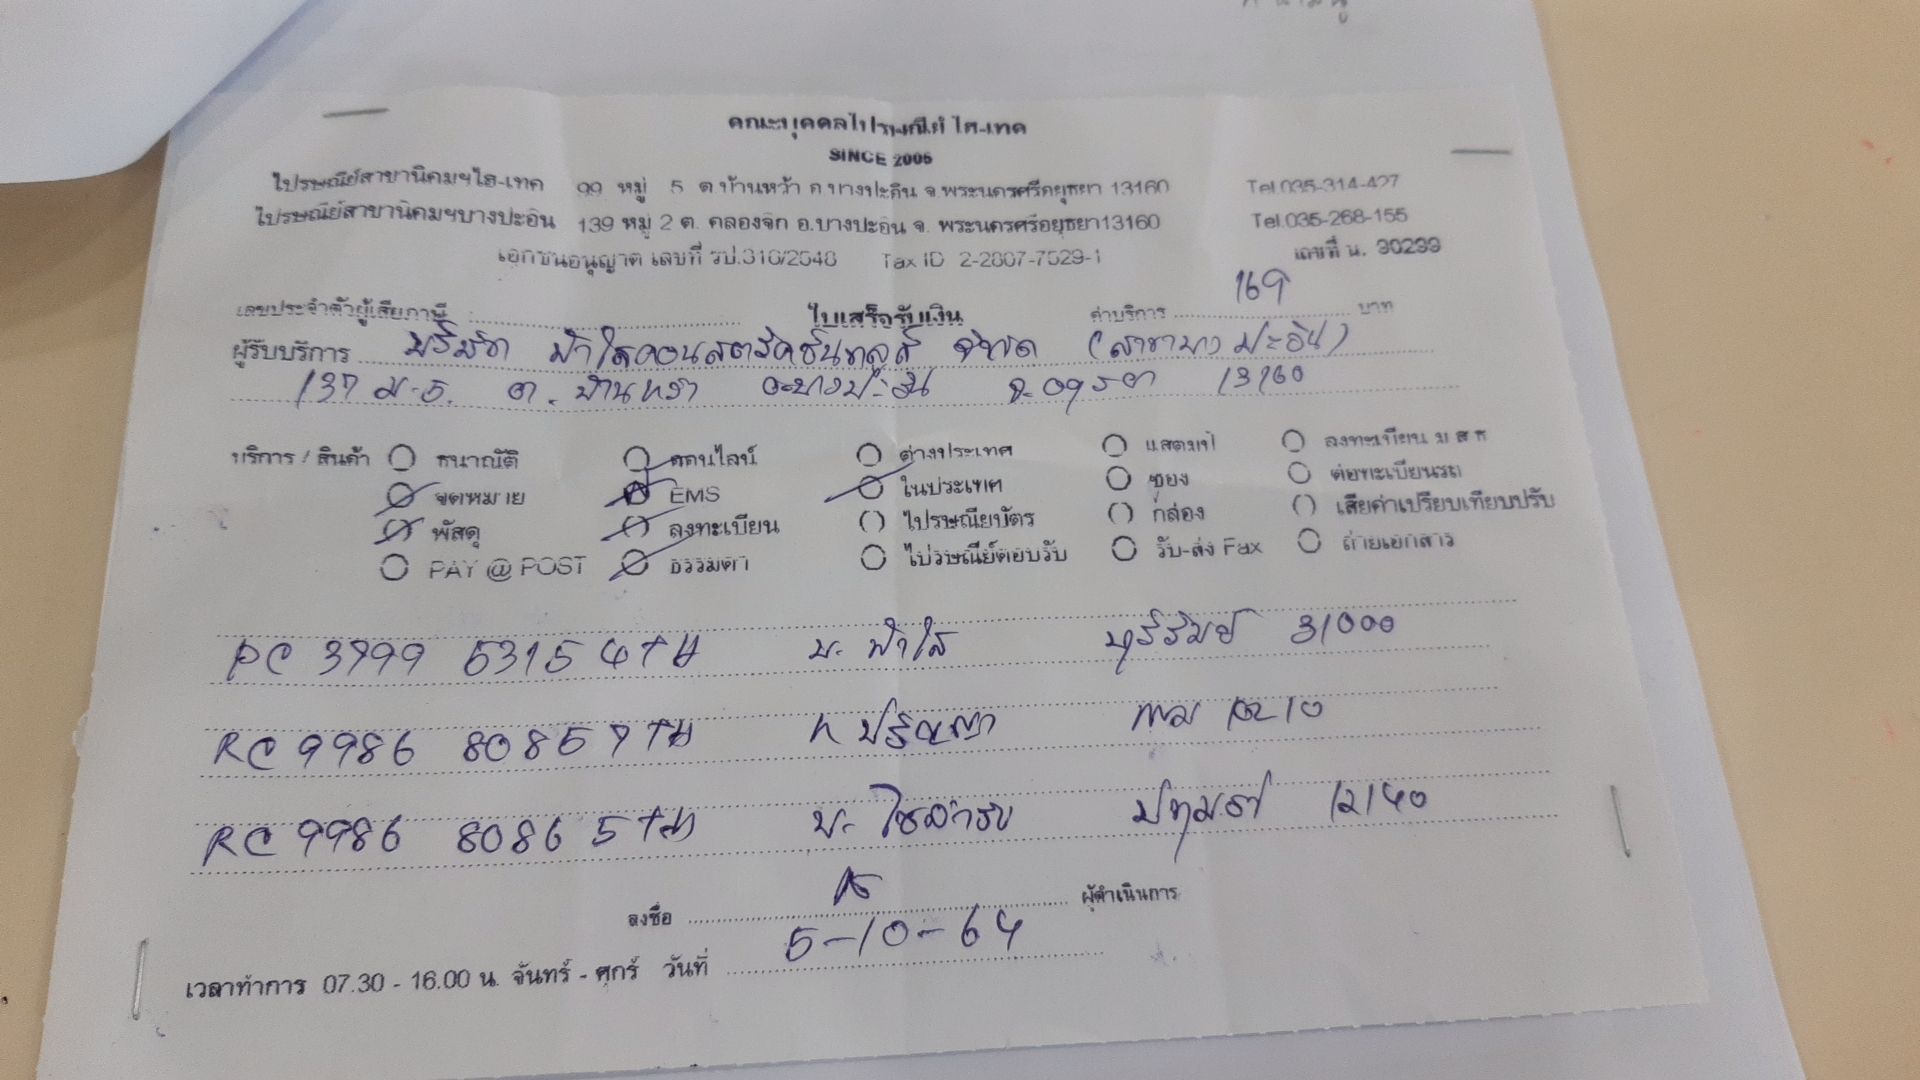 คณะบุคคลไปรษณีย์ ไฮ-เทค
SINCE 2005
ไปรษณีย์สาขานิคมฯไฮ-เทค 99 หมู่ 5 ต.บ้านหว้า อ.บางปะอิน จ.พระนครศรีอยุธยา 13160 Tel.035-314-427
ไปรษณีย์สาขานิคมฯบางปะอิน 139 หมู่ 2 ต. คลองจิก อ.บางปะอิน จ. พระนครศรีอยุธยา13160 Tel.035-268-155
เอกชนอนุญาต เลขที่ รป.316/2548 Tax ID 2-2807-7529-1 เลขที่ น. 30233
เลขประจำตัวผู้เสียภาษี ใบเสร็จรับเงิน ค่าบริการ 169 บาท
ผู้รับบริการ บริษัท ฟ้าใสคอนสตรัคชั่น จำกัด (สาขาบางปะอิน)
137 ม.5. ต. บ้านหว้า อ.บางปะอิน จ.อยุธยา 13160
บริการ / สินค้า ธนาณัติ ออนไลน์ ต่างประเทศ แสตมป์ ลงทะเบียน
จดหมาย EMS ในประเทศ ซอง ต่อทะเบียนรถ
พัสดุ ลงทะเบียน ไปรษณียบัตร กล่อง เสียค่าเปรียบเทียบปรับ
PAY @ POST ธรรมดา ไปรษณีย์ตอบรับ รับ-ส่ง Fax ถ่ายเอกสาร
PC 3999 5315 4TH บ. ฟ้าใส บุรีรัมย์ 31000
RC 9986 8085 7TH ปริญญา กทม 10210
RC 9986 8086 5TH บ. ปทุมธานี 12140
ลงชื่อ ผู้ดำเนินการ
เวลาทำการ 07.30 - 16.00 น. จันทร์ - ศุกร์ วันที่ 5-10-64